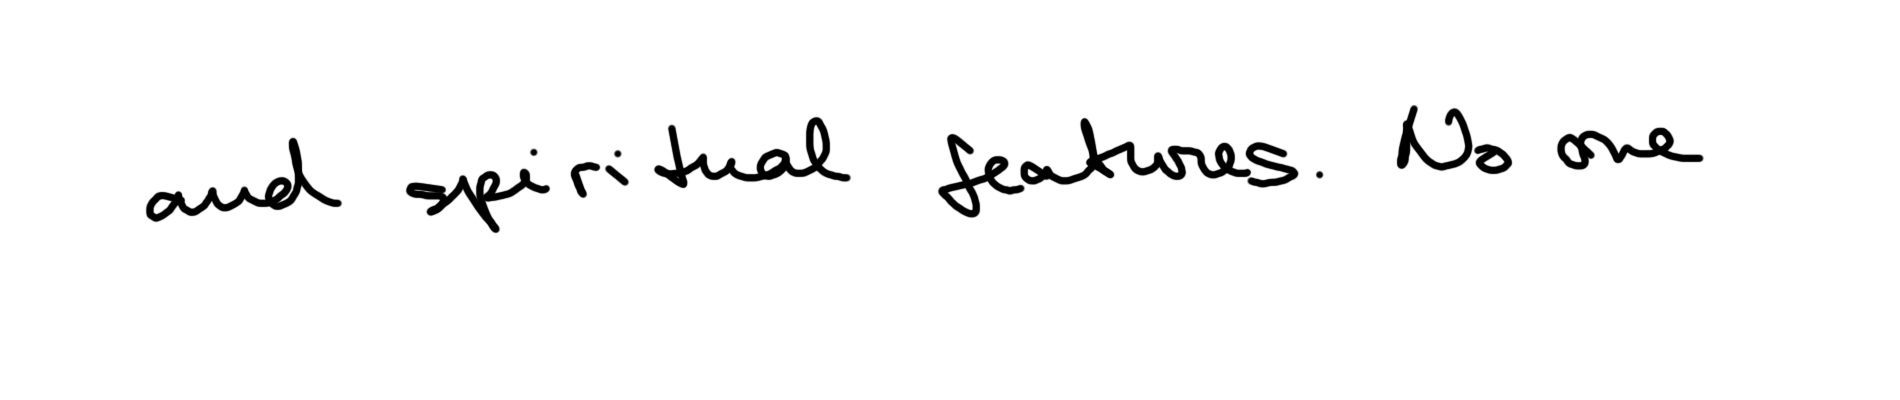 and spiritual features. No one